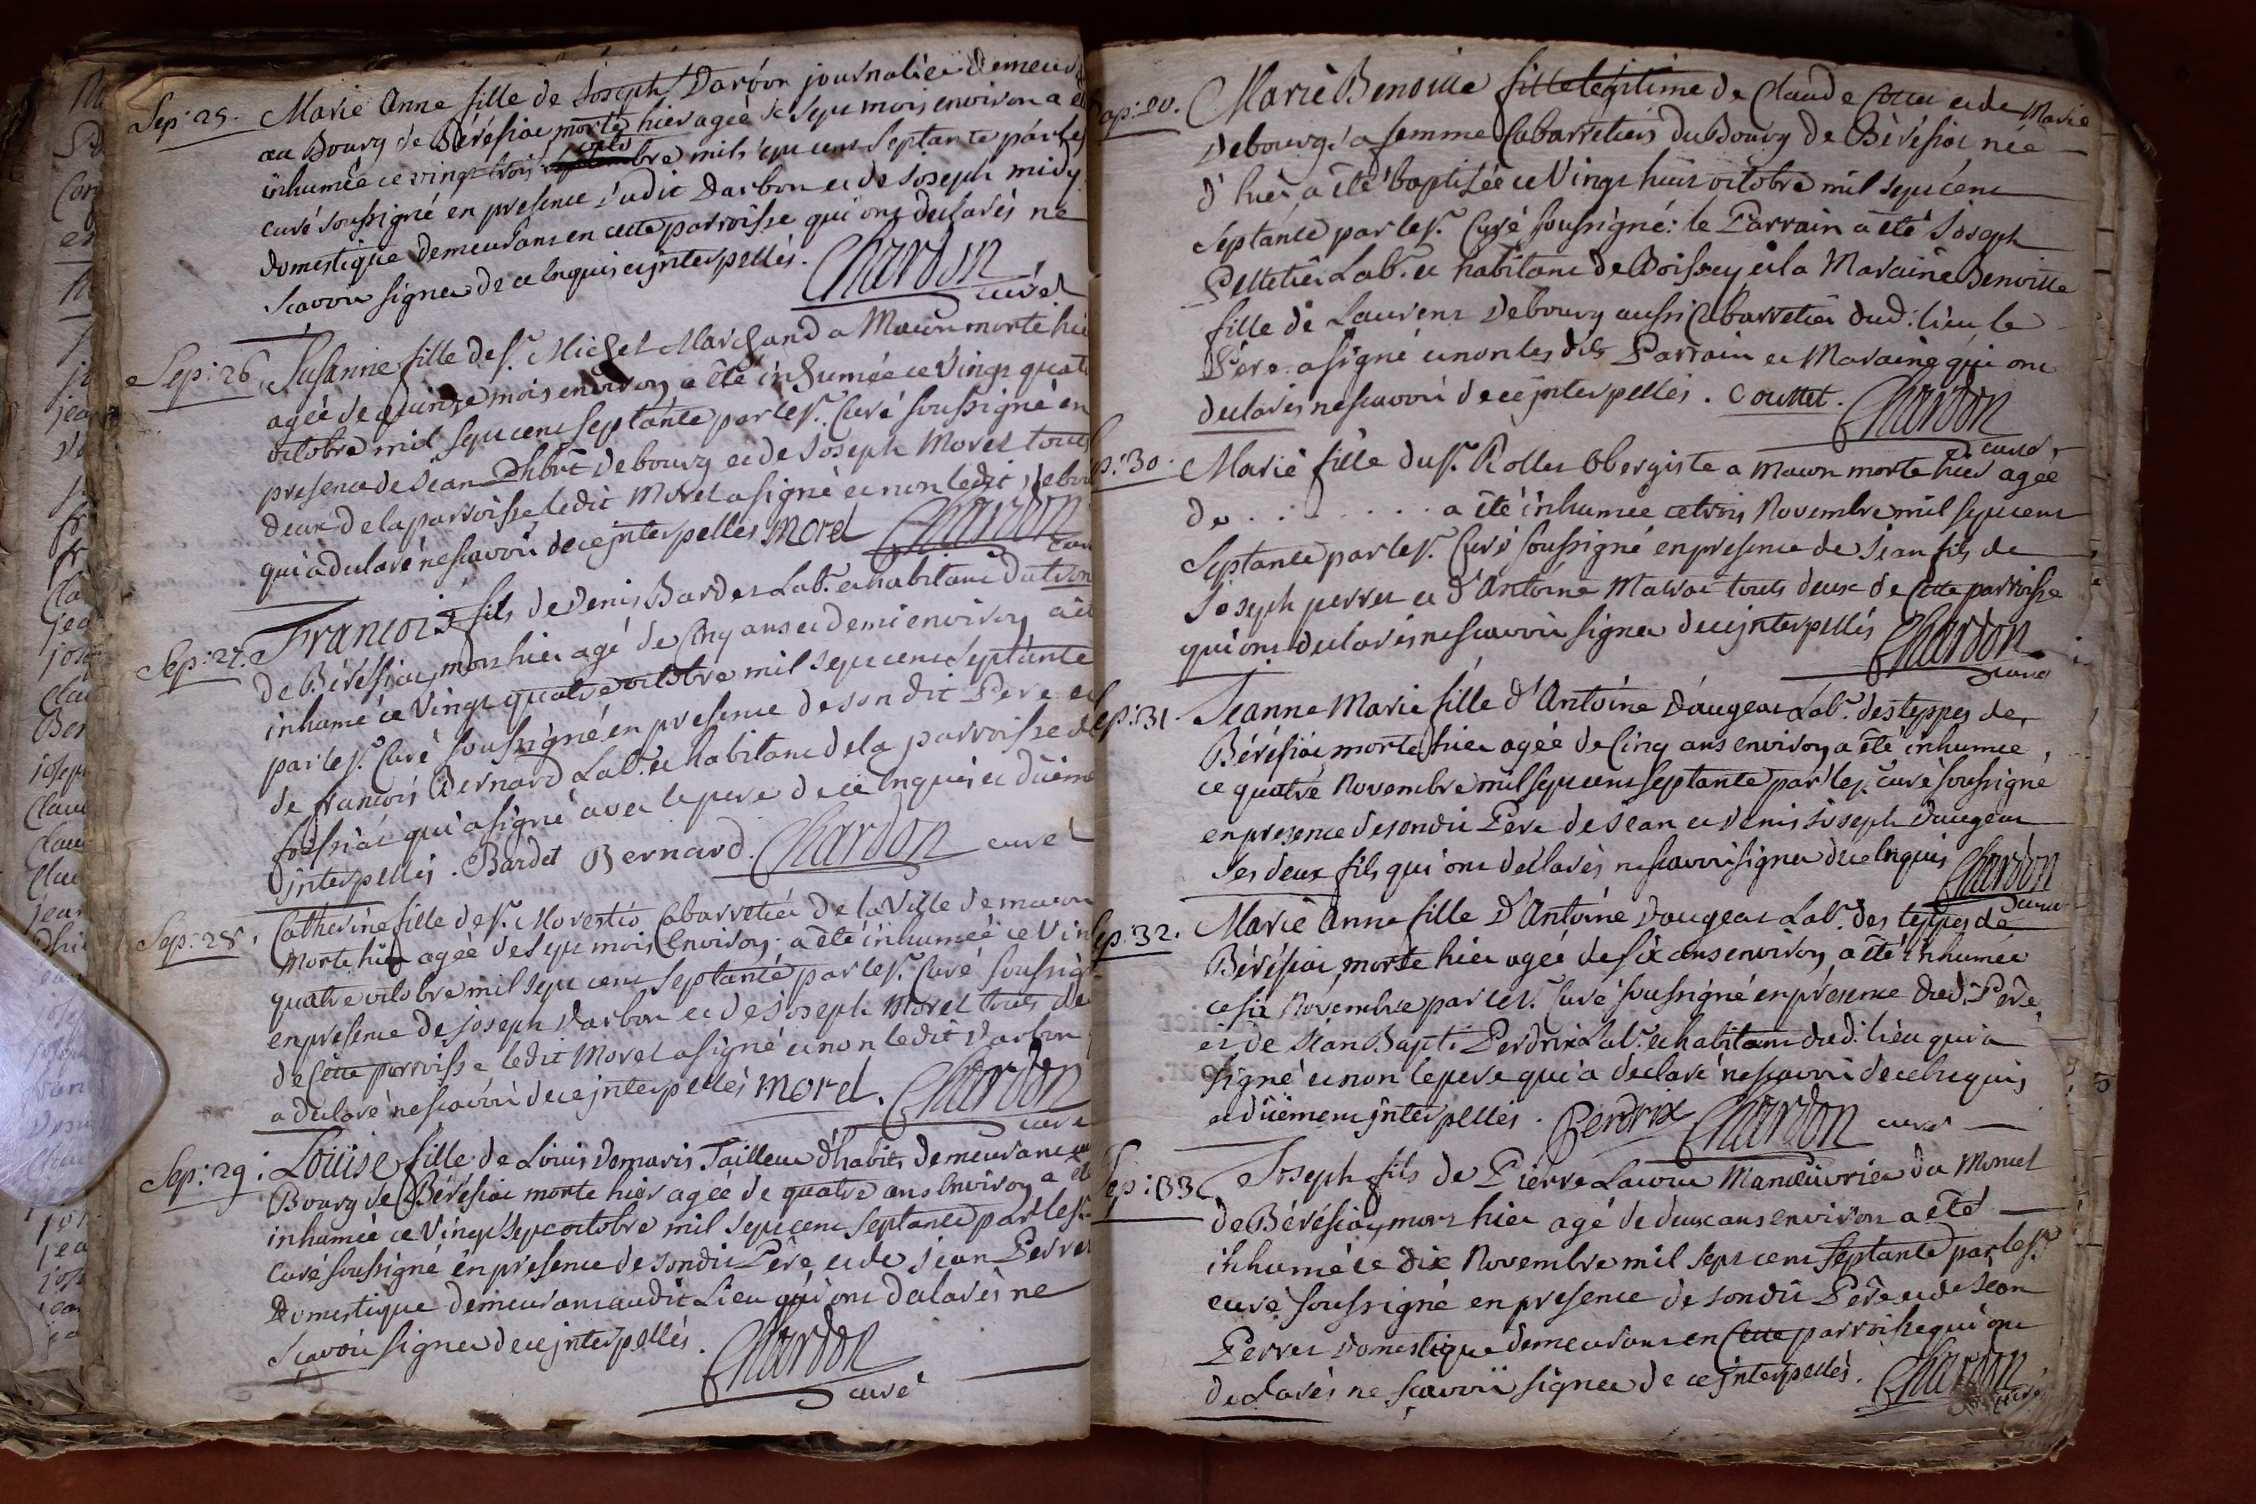 Sep: 25. Marie Anne fille de Joseph Darbon journalier demeur
au Bourg de Bérésiat morte hier agée de sept mois environ a é
inhumée ce vingt trois octo bre mil sept cent septante par le
curé soussigné en presence dudit Darbon et de Joseph midy
domestique demeurans en cette parroisse qui ont declarés ne
scavoir signer de ce enquis et interpellés. Chardon
curé
Sep: 26. Susanne fille de sr. Michel Marchand a Macon morte hie
agée de quinze mois environ a été inhumée ce vingt quat
octobre mil sept cent septante par le sr. Curé soussigné en
presence de Jean Phbrt Debourg et de Joseph Morel touts
deux de la parroisse ledit Morel a signé et non ledit Debou
qui a declaré ne scavoir de ce interpellés Morel Chardon
cur
Sep: 27. François fils de Denis Bardet Lab. et habitant du
de Bérésiat, mort hier agé de Cinq ans et demi environ a ét
inhumé ce vingt quatre octobre mil sept cent septante
par le sr. Curé soussigné en presence de son dit Pere et
de françois Bernard Lab. et habitant de la parroisse de
foissiat qui a signé avec le pere de ce enquis et düeme
interpellés. Bardet Bernard. Chardon curé
Sep: 28. Catherine fille de sr. Morestio Cabarretier de la Ville de macon
morte hier agée de sept mois Environ a été inhumée ce vin
quatre octobre mil sept cent septante par le sr. Curé soussign
en presence de joseph Darbon et de Joseph Morel touts de
de Cette parroisse ledit Morel a signé et non ledit Darbon
a declaré ne scavoir de ce interpellés Morel. Chardon
curé
Sep: 29. Louise fille de Louis Demaris Tailleur d'habits demeurant au
Bourg de Bérésiat morte hier agée de quatre ans environ a ét
inhumée ce vingt sept octobre mil sept cent septante par le sr.
Curé soussigné en presence de son dit Père et de jean Perret
Domestique demeurans audit Lieu qui ont declarés ne
scavoir signer de ce interpellés.
Chardon
curé
ap: 20. Marie Benoite fille legitime de Claude Cottet et de Marie
Debourg sa femme Cabarretiers du Bourg de Bérésiat née
d'hier a été baptisée ce Vingt huit octobre mil sept cent
septante par le sr. Curé soussigné: le Parrain a été Joseph
Pelletier Lab. et habitant de Boissey et la Maraine Benoite
fille de Laurent Debourg aussi Cabarretier dud: lieu le
Père a signé et non les dits Parrain et Maraine qui ont
declarés ne scavoir de ce interpellés. Couttet. Chardon
curé
p: 30. Marie fille du sr. Rollet Obergiste a macon morte hier agée
de . . . . . . . . a été inhumée ce trois Novembre mil sept cent
Septante par le sr. Curé soussigné en presence de Jean fils de
Joseph perret et d'Antoine Malvat touts deux de Cette parroisse
qui ont declarés ne scavoir signer de ce interpellés Chardon
curé
ep: 31. Jeanne Marie fille d'Antoine Daugeat Lab. des teppes de
Bérésiat morte hier agée de Cinq ans environ a été inhumée
ce quatre Novembre mil sept cent septante par le sr. curé soussigné
en presence de son dit Pere de Jean et Denis Joseph Daugeat
ses deux fils qui ont declarés ne scavoir signer de ce enquis Chardon
curé
ep: 32. Marie Anne fille d'Antoine Daugeat Lab. des teppes de
Bérésiat, morte hier agée de six ans environ a été inhumée
ce six Novembre par le sr. Curé soussigné en présence dud. Pere
et de Jean Bapt. Perdrix Lab. et habitant dud. lieu qui a
signé et non le pere qui a declaré ne scavoir de ce enquis
et düement interpellés. Perdrix Chardon curé
Sep: 33. Joseph fils de Pierre Lacour Manœuvrier du Moncel
de Bérésiat, mort hier agé de deux ans environ a été
inhumé ce dix Novembre mil sept cent septante par le sr.
curé soussigné en presence de son dit Père et de Jean
Perret Domestique demeurans en Cette parroisse qui ont
declarés ne scavoir signer de ce interpellés. Chardon
curé